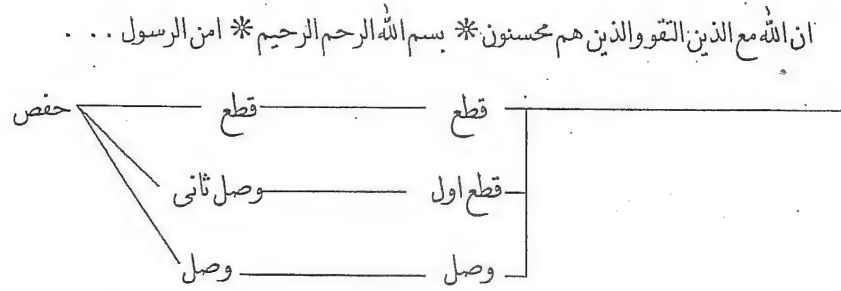 ان الله مع الذين التقو والذين هم محسنون * بسم الله الرحم الرحيم * امن الرسول . . .
قطع قطع حفص
قطع اول وصل ثانى
وصل وصل